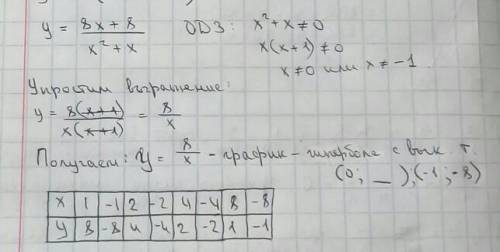 y = (8x + 8)/(x² + x)   ОДЗ: x² + x ≠ 0
x(x+1) ≠ 0
x ≠ 0 или x ≠ -1.
Упростим выражение:
y = 8(x+1)/x(x+1) = 8/x
Получаем: y = 8/x - график - гипербола с вык. т.
(0; _ ), (-1; -8)
x 1 -1 2 -2 4 -4 8 -8
y 8 -8 4 -4 2 -2 1 -1